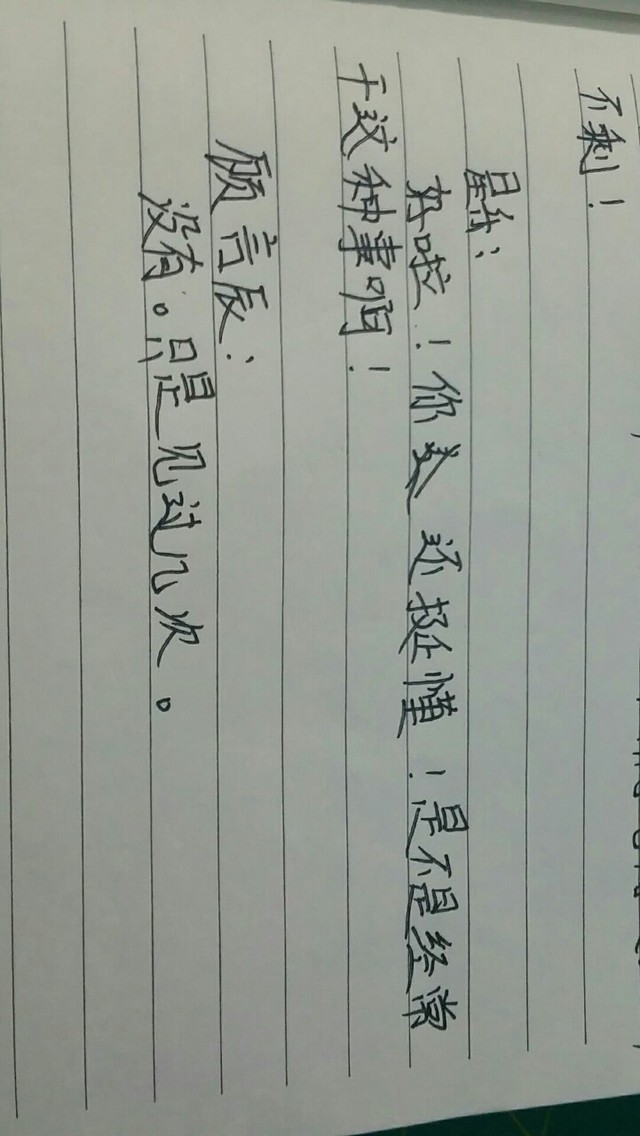 不剩！
星：
好啦！你还挺懂！是不是经常
干这种事啊！
顾言辰：
没有。只是见过几次。